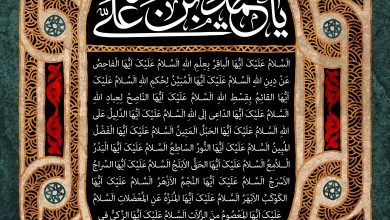 يا محمد بن علي
السَّلامُ عَلَيْكَ أَيُّهَا الْبَاقِرُ بِعِلْمِ اللهِ السَّلامُ عَلَيْكَ أَيُّهَا الْفَاحِصُ
عَنْ دِينِ اللهِ السَّلامُ عَلَيْكَ أَيُّهَا الْمُبَيِّنُ لِحُكْمِ اللهِ السَّلامُ عَلَيْكَ
أَيُّهَا الْقَائِمُ بِقِسْطِ اللهِ السَّلامُ عَلَيْكَ أَيُّهَا النَّاصِحُ لِعِبادِ اللهِ
السَّلامُ عَلَيْكَ أَيُّهَا الدَّاعِي إِلَى اللهِ السَّلامُ عَلَيْكَ أَيُّهَا الدَّلِيلُ عَلَى
اللهِ السَّلامُ عَلَيْكَ أَيُّهَا الْحَبْلُ الْمَتِينُ السَّلامُ عَلَيْكَ أَيُّهَا الْفَضْلُ
الْمُبِينُ السَّلامُ عَلَيْكَ أَيُّهَا النُّورُ السَّاطِعُ السَّلامُ عَلَيْكَ أَيُّهَا الْبَدْرُ
اللَّامِعُ السَّلامُ عَلَيْكَ أَيُّهَا الْحَقُّ الْأَبْلَجُ السَّلامُ عَلَيْكَ أَيُّهَا السِّراجُ
الْأَسْرَجُ السَّلامُ عَلَيْكَ أَيُّهَا النَّجْمُ الْأَزْهَرُ السَّلامُ عَلَيْكَ أَيُّهَا
الْكَوْكَبُ الْأَبْهَرُ السَّلامُ عَلَيْكَ أَيُّهَا الْمُنَزَّهُ عَنِ الْمُعْضَلاتِ السَّلامُ
عَلَيْكَ أَيُّهَا الْمَعْصُومُ مِنَ الزَّلَّاتِ السَّلامُ عَلَيْكَ أَيُّهَا الزَّكِيُّ فِي